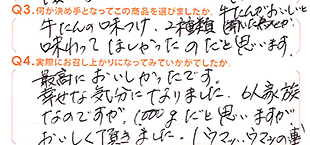 Q3.何が決め手となってこの商品を選びましたか。牛たんがおいしいと
牛たんの味つけ、2種類
味わってほしかったのだと思います。
Q4.実際にお召し上がりになってみていかがでしたか。
最高においしかったです。
幸せな気分になりました。6人家族
なのですが、1000gだと思いますが
おいしく頂きました。ウマッ、ウマッの連